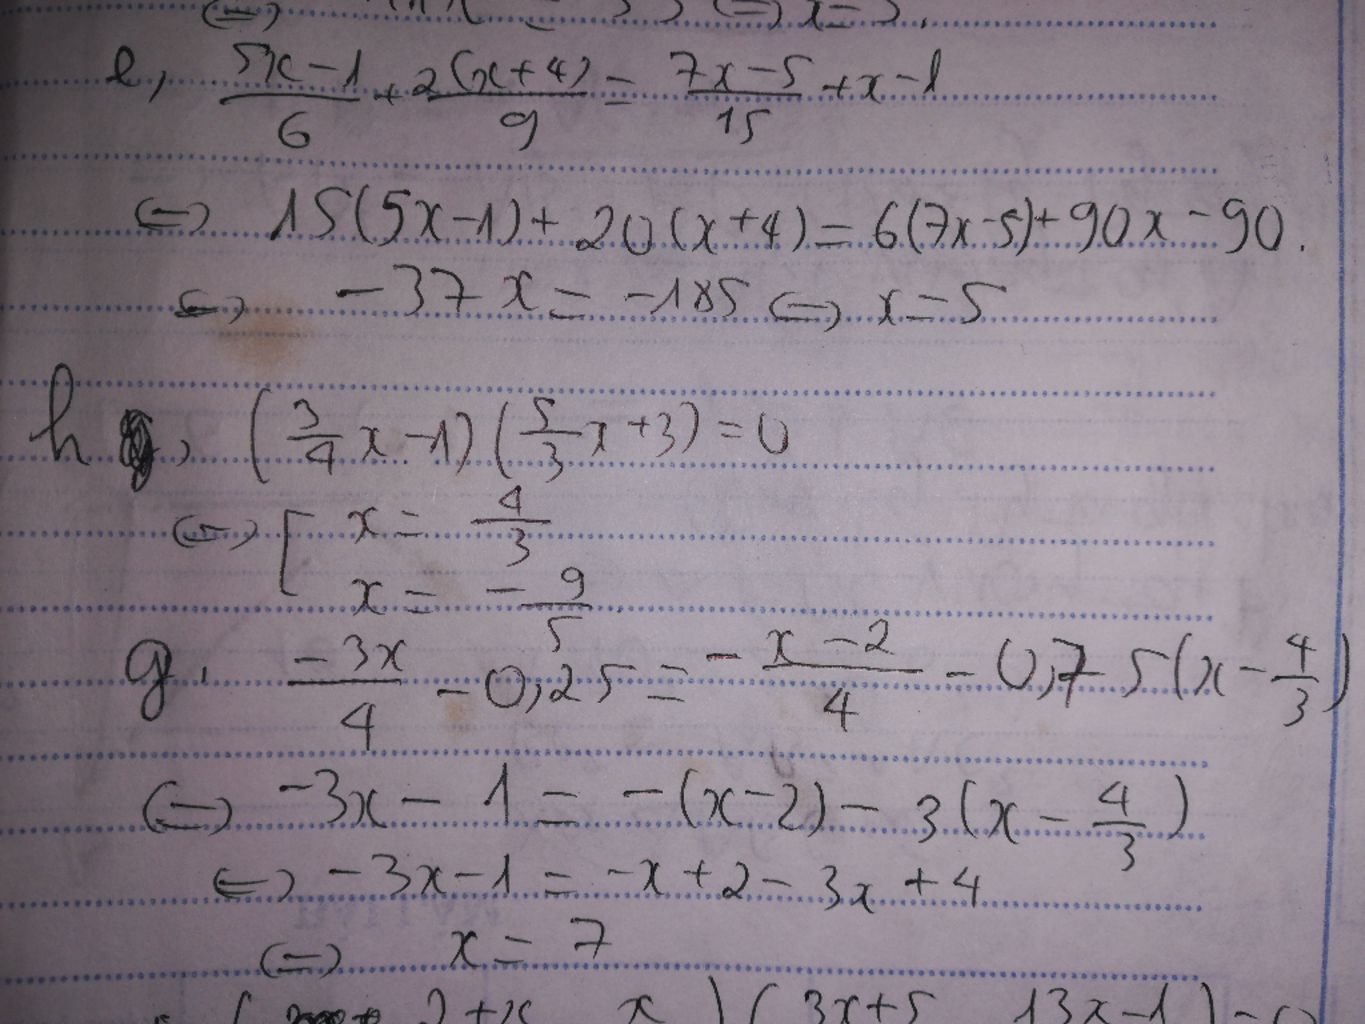 ⇔ x = 3.
e, (5x-1)/6 + 2(x+4)/9 = (7x-5)/15 + x-1
⇔ 15(5x-1) + 20(x+4) = 6(7x-5) + 90x - 90.
⇔ -37x = -185 ⇔ x = 5
h, (3/4 x -1)(5/3 x + 3) = 0
⇔ [ x = 4/3
x = -9/5
g. -3x/4 - 0,25 = -(x-2)/4 - 0,75(x - 4/3)
⇔ -3x - 1 = -(x-2) - 3(x - 4/3)
⇔ -3x - 1 = -x + 2 - 3x + 4
⇔ x = 7
2+x x)(3x+5 13x-1)